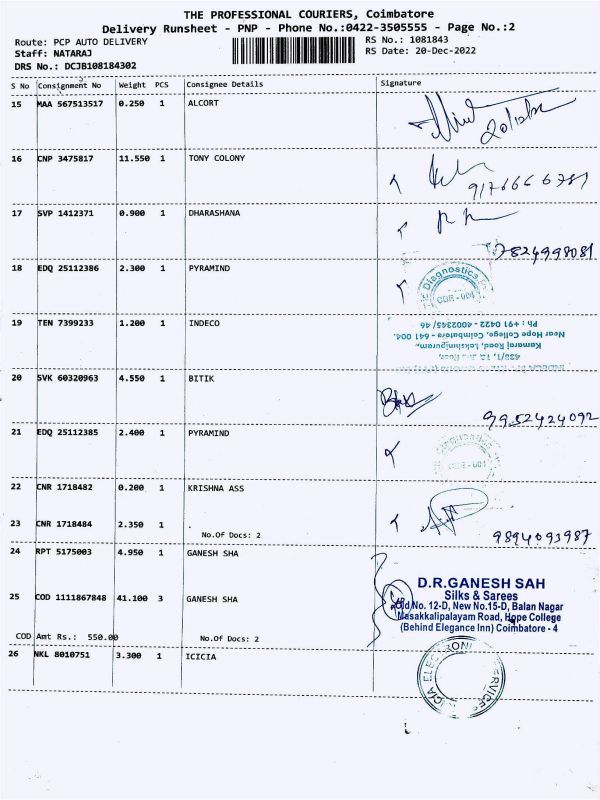 THE PROFESSIONAL COURIERS, Coimbatore
Delivery Runsheet - PNP - Phone No.:0422-3505555 - Page No.:2
Route: PCP AUTO DELIVERY RS No.: 1081843
Staff: NATARAJ RS Date: 20-Dec-2022
DRS No.: DCJB108184302
S No Consignment No Weight PCS Consignee Details Signature
15 MAA 567513517 0.250 1 ALCORT
16 CNP 3475817 11.550 1 TONY COLONY
9176666781
17 SVP 1412371 0.900 1 DHARASHANA
7824998081
18 EDQ 25112386 2.300 1 PYRAMIND
Diagnostics
CBE - 004
19 TEN 7399233 1.200 1 INDECO
Kamaraj Road, Lakshmipuram,
Near Hope College, Coimbatore - 641 004.
Ph : +91 0422 - 4002345/ 46
20 SVK 60320963 4.550 1 BITIK
9952424092
21 EDQ 25112385 2.400 1 PYRAMIND
22 CNR 1718482 0.200 1 KRISHNA ASS
23 CNR 1718484 2.350 1
No.Of Docs: 2
9894093987
24 RPT 5175003 4.950 1 GANESH SHA
25 COD 1111867848 41.100 3 GANESH SHA
D.R.GANESH SAH
Silks & Sarees
Old No. 12-D, New No.15-D, Balan Nagar
Masakkalipalayam Road, Hope College
(Behind Elegance Inn) Coimbatore - 4
COD Amt Rs.: 550.00 No.Of Docs: 2
26 NKL 8010751 3.300 1 ICICIA